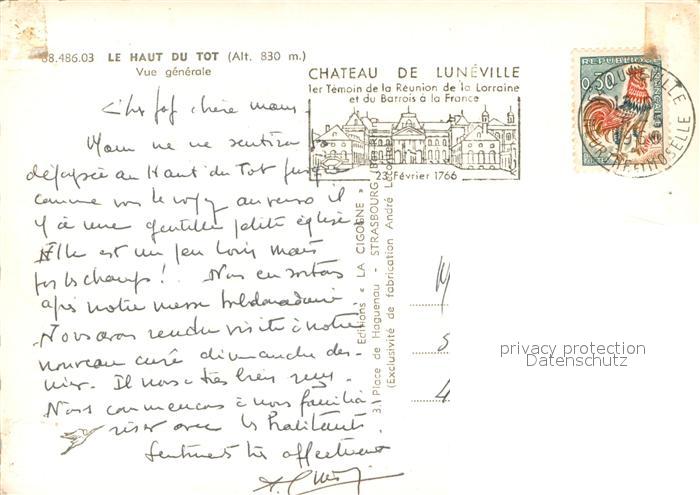 88.486.03 LE HAUT DU TOT (Alt. 830 m.)
Vue générale
CHATEAU DE LUNÉVILLE
1er Témoin de la Réunion de la Lorraine
et du Barrois à la France
23 Février 1766
REPUBLIQUE
0,30
MEURTHE-ET-MOSELLE
Editions « LA CIGOGNE »
3, Place de Haguenau - STRASBOURG
(Exclusivité de fabrication André
Cher
Mam ne se sentira pas
dépaysée au Haut du Tot puis
comme vous le voyez au verso il
y a une gentille petite église
Elle est un peu loin mais
par les champs ! Nous en sortons
après notre messe hebdomadaire.
Nous avons rendu visite à notre
nouveau curé dimanche der-
nier. Il nous a très bien reçus.
Nous commençons à nous familia-
riser avec les habitants.
Sentiments très affectueux
M
5
4
privacy protection
Datenschutz